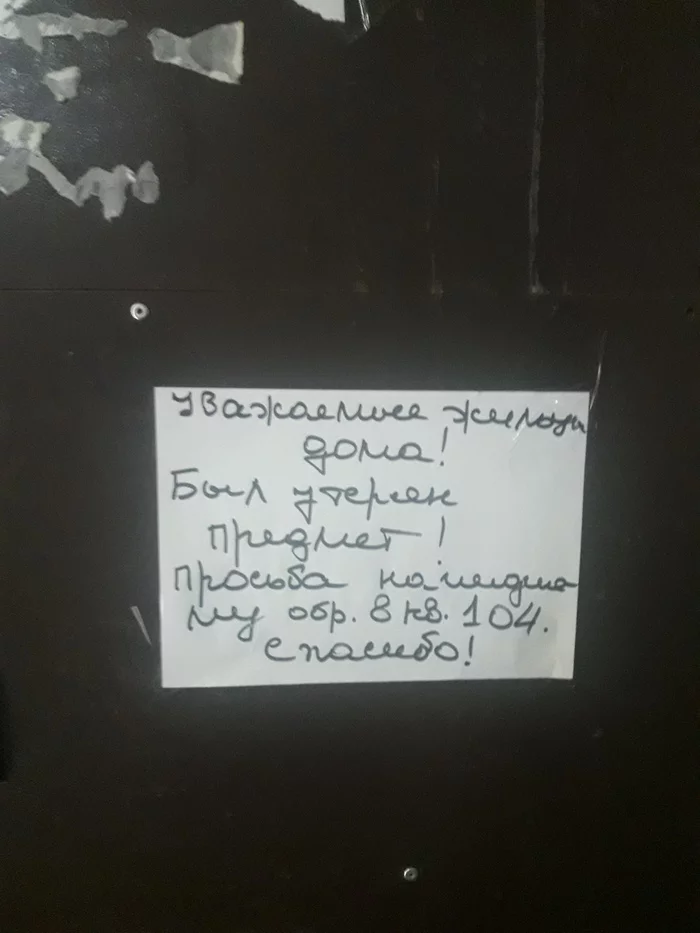 Уважаемые жильцы
дома!
Был утерян
предмет!
Просьба нашедше
му обр. в кв. 104.
Спасибо!